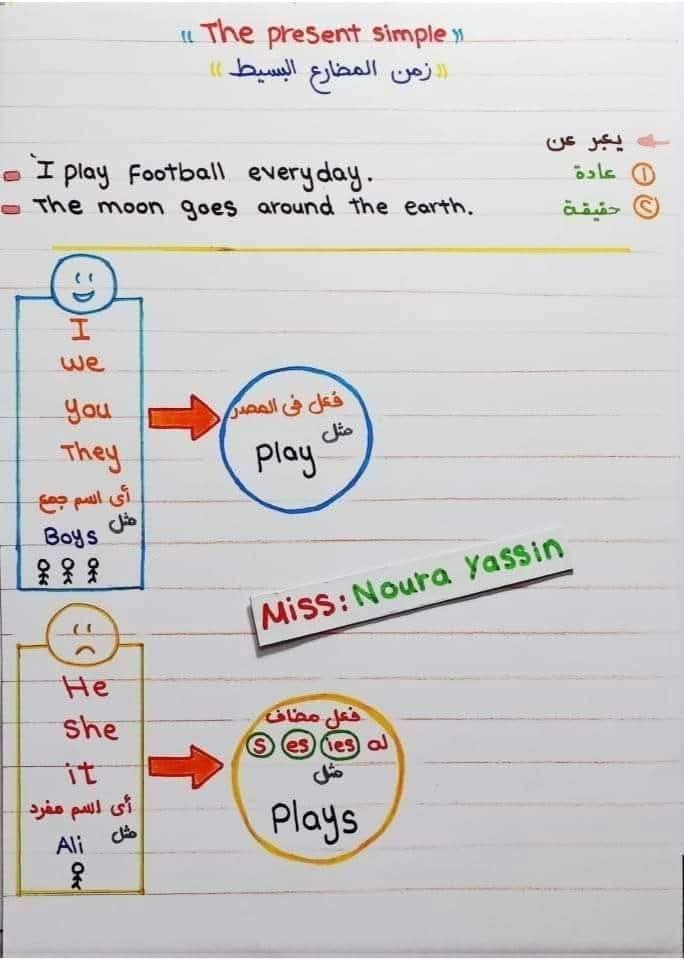 « The present simple »
« زمن المضارع البسيط »
يعبر عن
① عادة
I play Football everyday.
② حقيقة
The moon goes around the earth.
I
we
you
They
أى اسم جمع
مثل
Boys
فعل فى المصدر
مثل
Play
Miss: Noura yassin
He
She
it
أى اسم مفرد
مثل
Ali
فعل مضاف
له s es ies
مثل
Plays